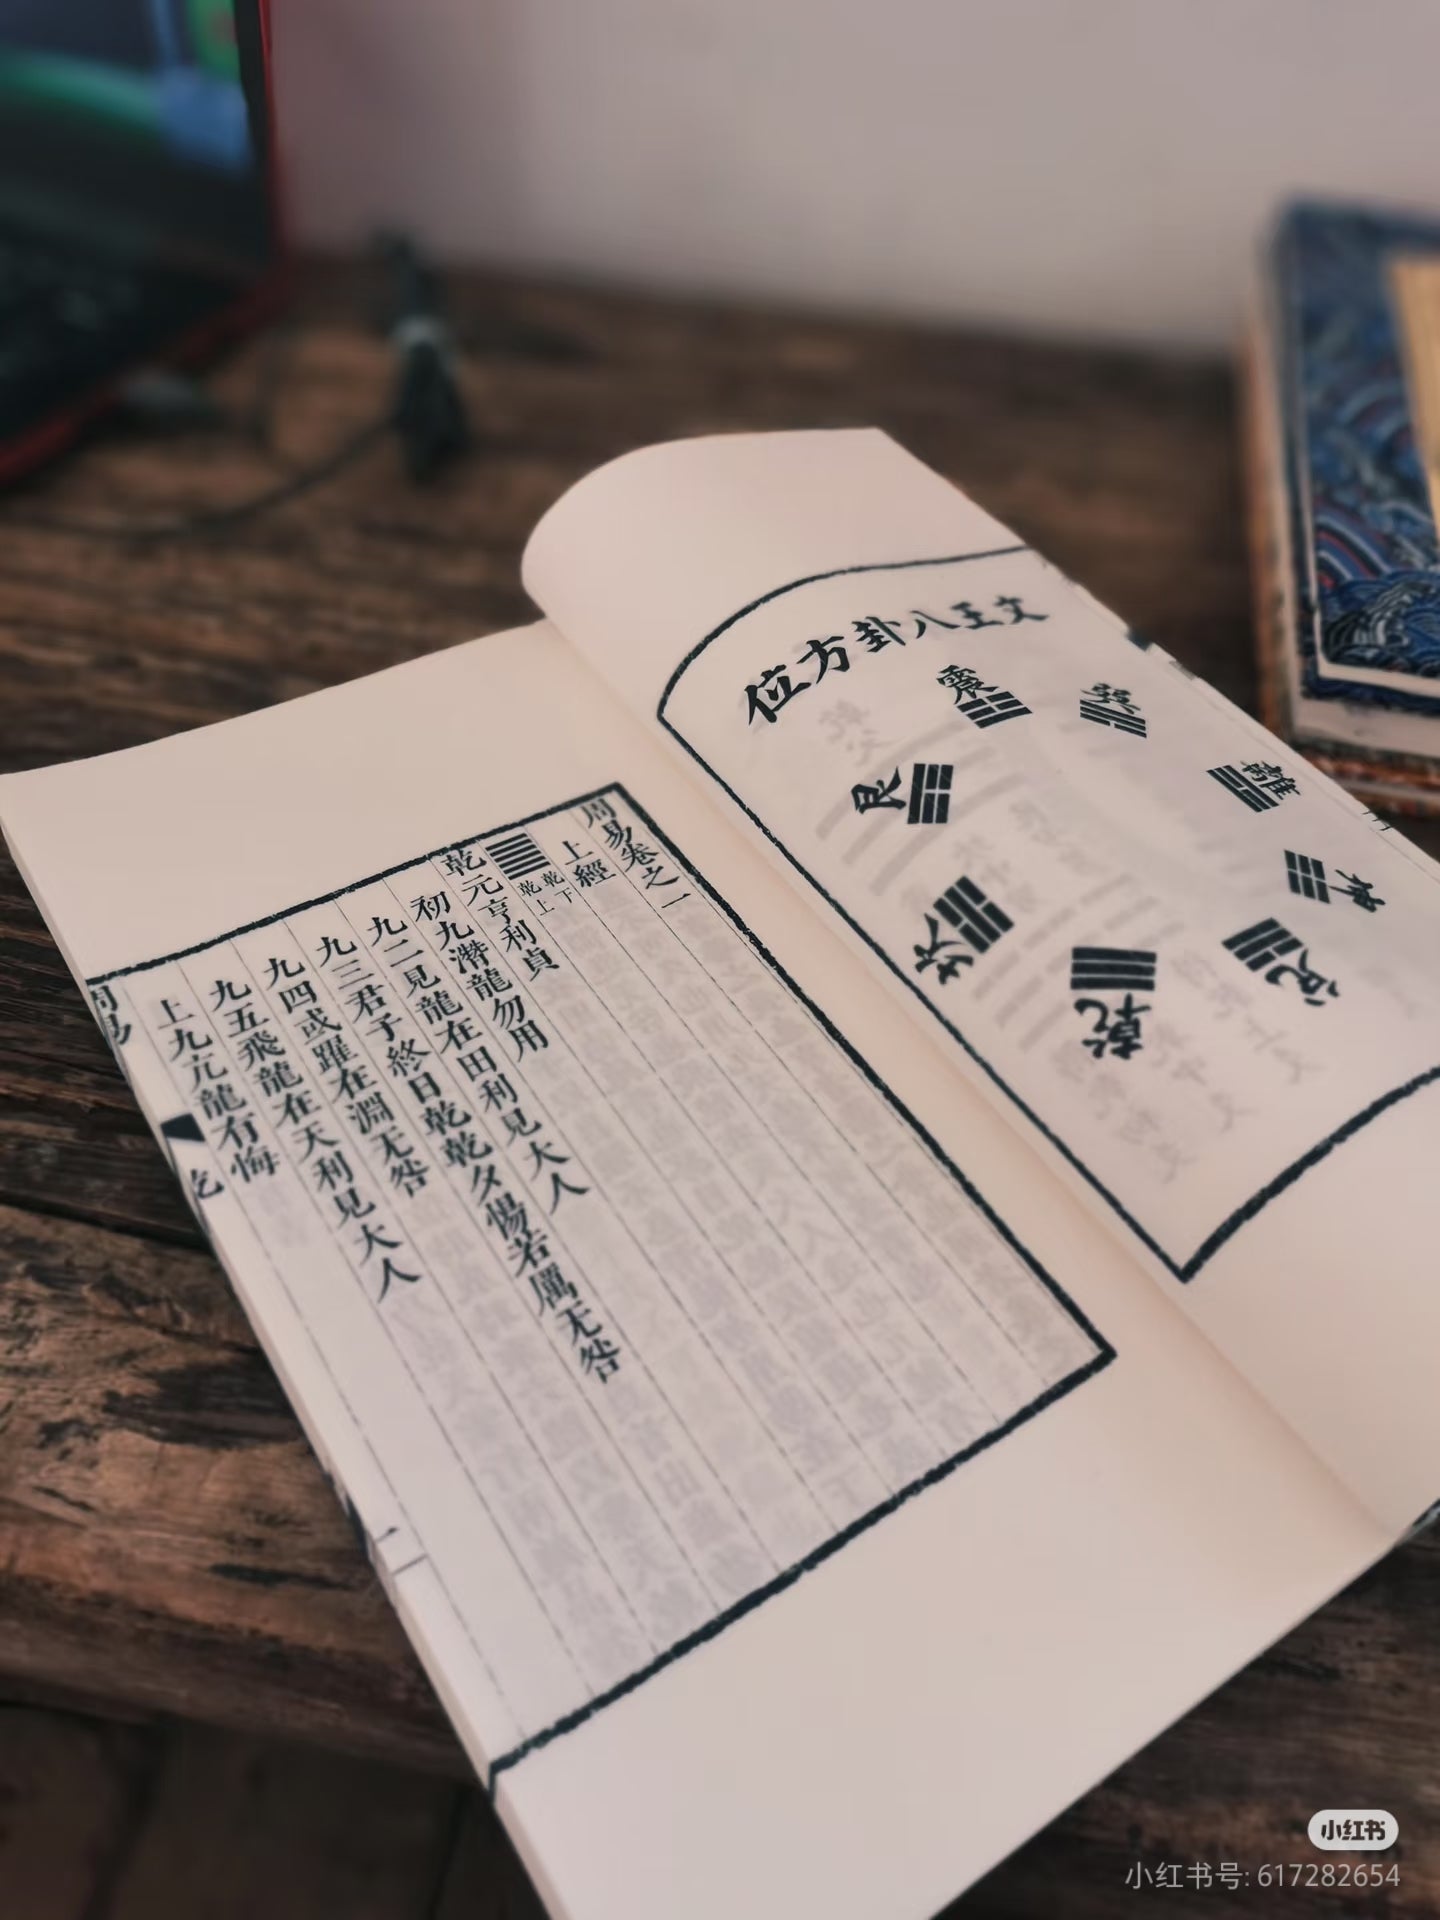 文王八卦方位
震
巽
離
坤
兌
乾
坎
艮
周易卷之一
上經
乾下
乾上
乾元亨利貞
初九潛龍勿用
九二見龍在田利見大人
九三君子終日乾乾夕惕若厲无咎
九四或躍在淵无咎
九五飛龍在天利見大人
上九亢龍有悔
周易
乾
一
小红书
小红书号: 617282654